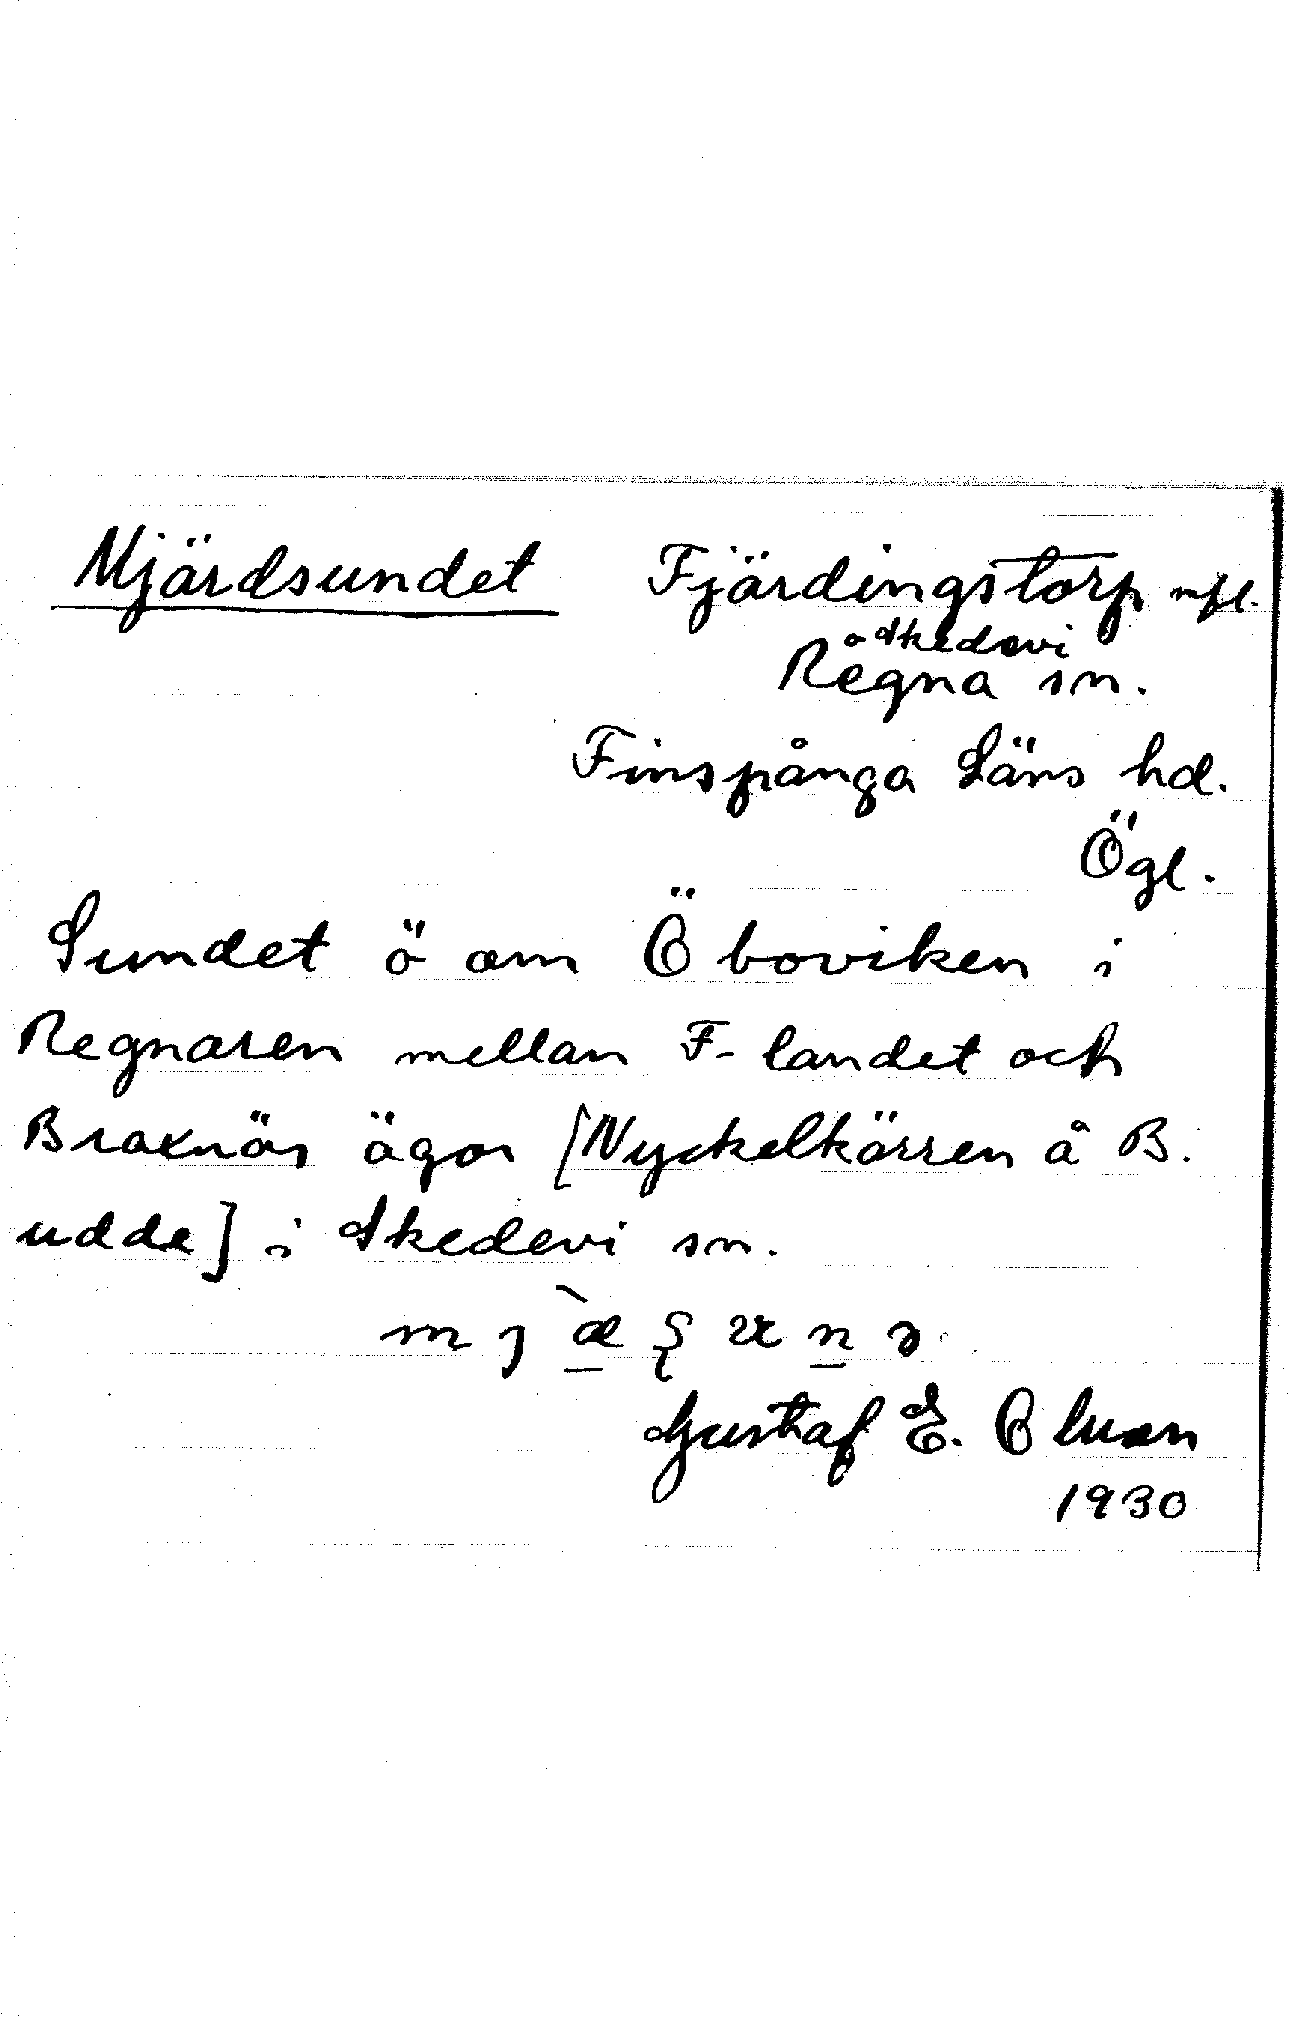 Mjärdsundet Fjärdingstorp mfl.
o Skedevi
Regna sn.
Finspånga Läns hd.
Ögl.
Sundet ö om Öboviken i
Regnaren mellan F-landet och
Braxnäs ägor [Nyckelkärren å B.
udde] i Skedevi sn.
Gustaf E.
1930